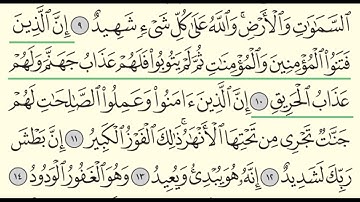 السَّمَٰوَٰتِ وَالْأَرْضِ ۚ وَاللَّهُ عَلَىٰ كُلِّ شَيْءٍ شَهِيدٌ ٩ إِنَّ الَّذِينَ
فَتَنُوا الْمُؤْمِنِينَ وَالْمُؤْمِنَاتِ ثُمَّ لَمْ يَتُوبُوا فَلَهُمْ عَذَابُ جَهَنَّمَ وَلَهُمْ
عَذَابُ الْحَرِيقِ ١٠ إِنَّ الَّذِينَ ءَامَنُوا وَعَمِلُوا الصَّٰلِحَٰتِ لَهُمْ
جَنَّٰتٌ تَجْرِي مِن تَحْتِهَا الْأَنْهَٰرُ ۚ ذَٰلِكَ الْفَوْزُ الْكَبِيرُ ١١ إِنَّ بَطْشَ
رَبِّكَ لَشَدِيدٌ ١٢ إِنَّهُ هُوَ يُبْدِئُ وَيُعِيدُ ١٣ وَهُوَ الْغَفُورُ الْوَدُودُ ١٤